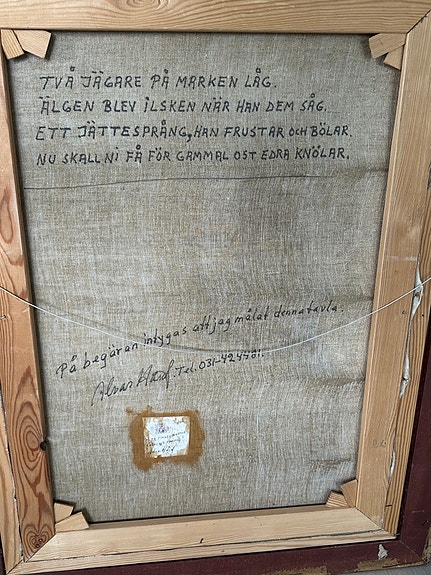 TVÅ JÄGARE PÅ MARKEN LÅG.
ÄLGEN BLEV ILSKEN NÄR HAN DEM SÅG.
ETT JÄTTESPRÅNG, HAN FRUSTAR OCH BÖLAR.
NU SKALL NI FÅ FÖR GAMMAL OST EDRA KNÖLAR.
På begäran intygas att jag målat denna tavla.
Alvar Tel. 031-424481.